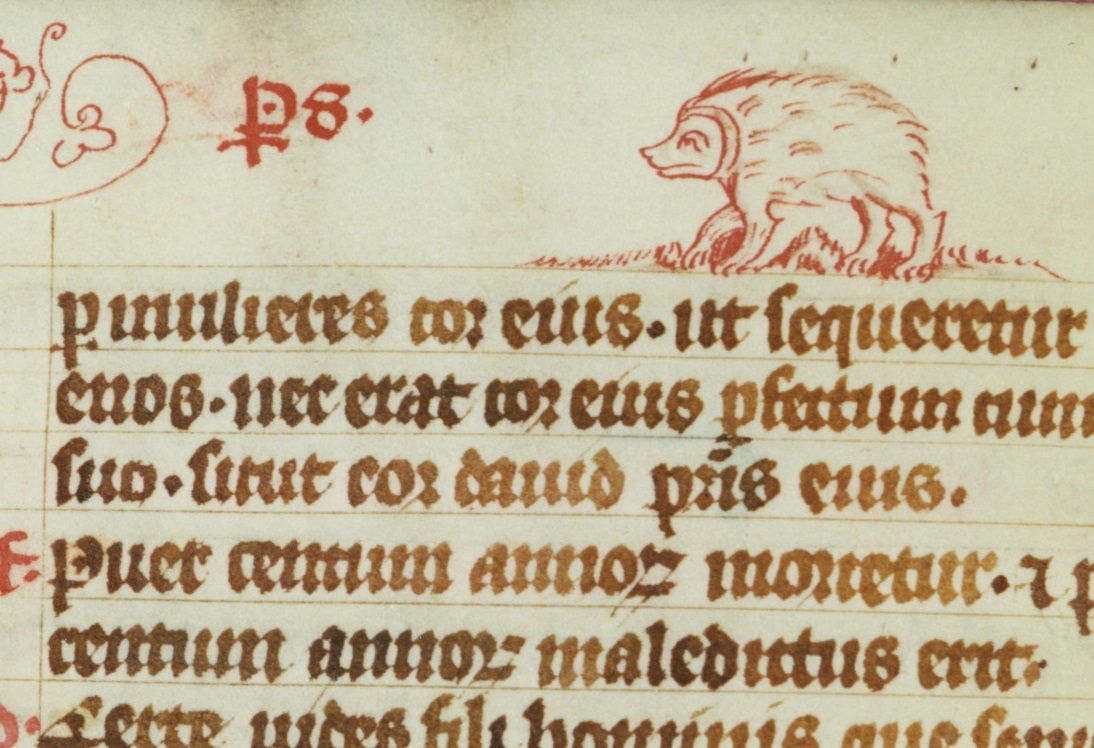 ps.
p mulieres cor eius. ut sequeretur
enos. nec erat cor eius pfectum cum
suo. sicut cor dauid pris eius.
Puer centum annoꝝ morietur. ⁊ p
centum annoꝝ maledictus erit.
fili hominis que